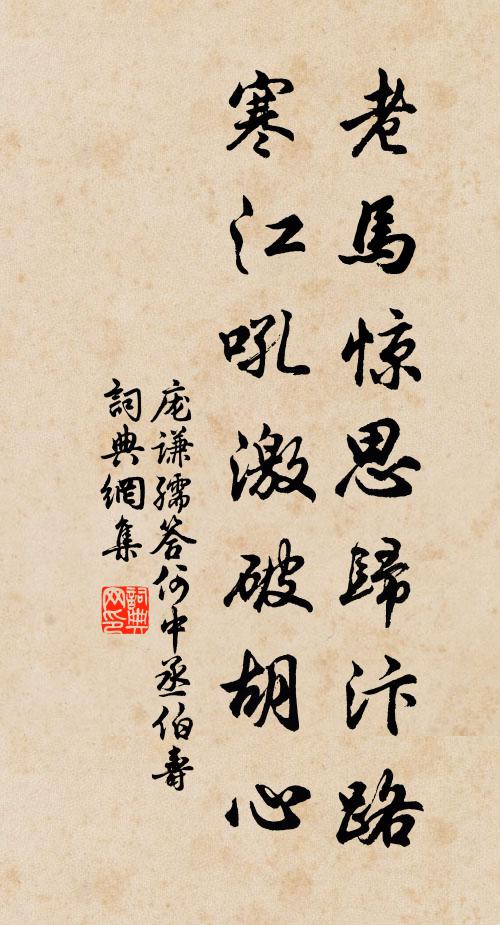 老馬惊思歸汴路
寒江吼激破胡心
庞谦孺答何中丞伯壽
詞典網集
詞典
网印